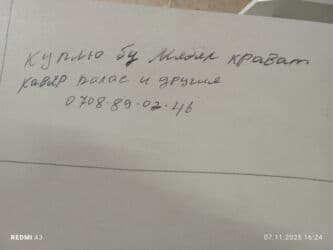 куплю бу мебел крават
кавер палас и другие
0708.89.07.46
REDMI A3
07.11.2025 16:24